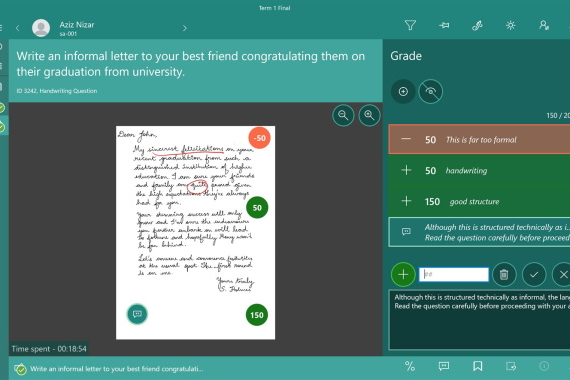 Term 1 Final
Aziz Nizar
sa-001
Write an informal letter to your best friend congratulating them on
their graduation from university.
ID 3242, Handwriting Question
Grade
150 / 20
Dear John,
My sincerest felicitations on your
recent graduation from such a
distinguished institution of higher
education. I am sure your friends
and family are quite proud given
the high expectations they've always
had for you.
Your stunning success will only
grow and I'm sure the endeavours
you further embark on will lead
to fortune and hopefully Mary won't
be far behind.
Let's convene and commence festivities
at the usual spot. The first round
is on me.
Yours truly
S. Holmes
-50
50
150
50 This is far too formal
50 handwriting
150 good structure
Although this is structured technically as i...
Read the question carefully before proceed
##
Although this is structured technically as informal, the lan
Read the question carefully before proceeding with your a
Time spent - 00:18:54
Write an informal letter to your best friend congratulati...
%